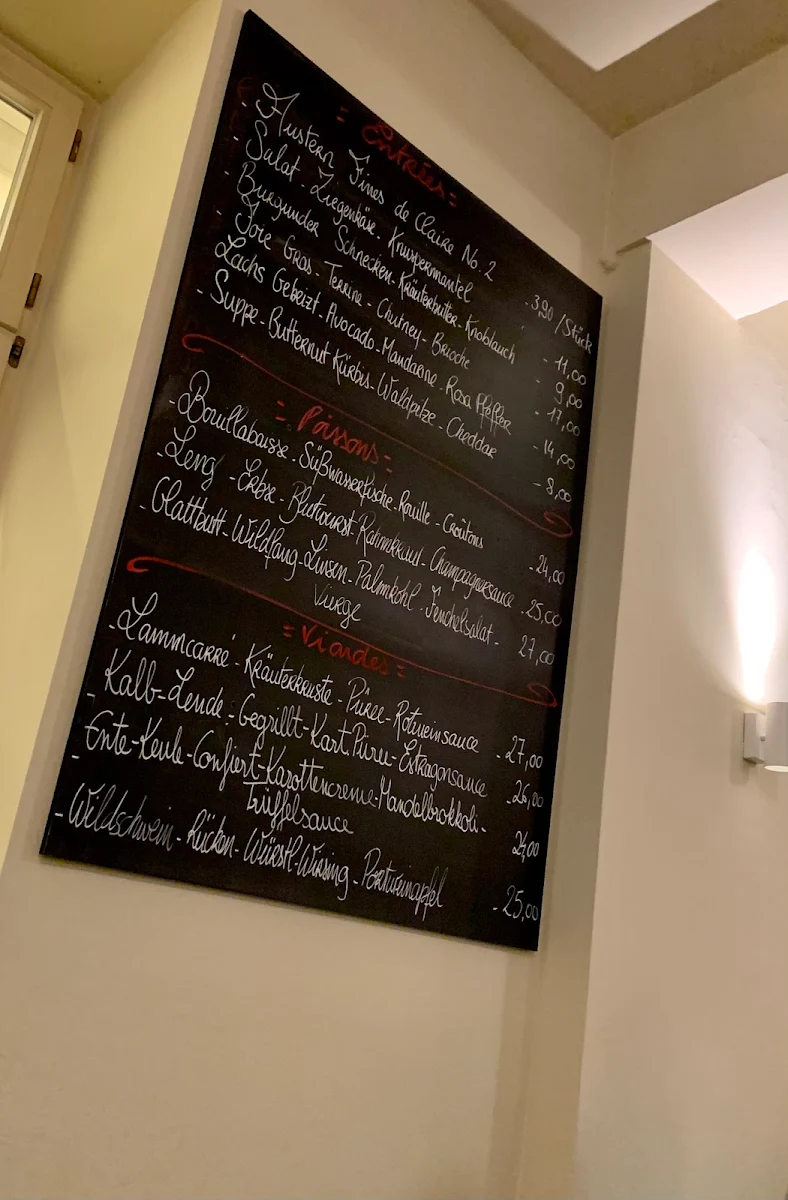 = Entrées =
- Austern Fines de Claire No. 2 - 3,90 /Stück
- Salat - Ziegenkäse - Knuspermantel - 11,00
- Burgunder Schnecken - Kräuterbutter - Knoblauch - 9,00
- Foie Gras - Terrine - Chutney - Brioche - 17,00
Lachs Gebeizt - Avocado - Mandarine - Rosa Pfeffer - 14,00
- Suppe - Butternut Kürbis - Waldpilze - Cheddar - 8,00
= Poissons =
- Bouillabaisse - Süßwasserfische - Rouille - Croûtons - 24,00
- Leng - Erbse - Blutwurst - Rahmkraut - Champagnersauce - 25,00
- Glattbutt - Wildfang - Linsen - Palmkohl - Fenchelsalat - 27,00
Vierge
= Viandes =
- Lammcarré - Kräuterkruste - Püree - Rotweinsauce - 27,00
- Kalb - Lende - Gegrillt - Kart. Püree - Estragonsauce - 26,00
- Ente - Keule - Confiert - Karottencreme - Mandelbrokkoli - 24,00
Trüffelsauce
- Wildschwein - Rücken - Würstl - Wirsing - Portweinapfel - 25,00